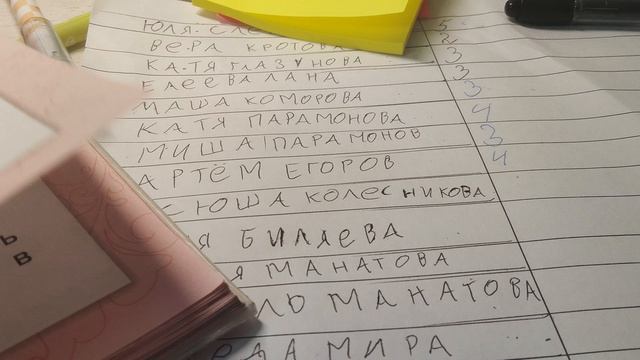 ЮЛЯ 5
ВЕРА КРОТОВА 2
КАТЯ ГЛАЗУНОВА 3
ЕЛЕЕВА ЛАНА 3
МАША КОМОРОВА 3
КАТЯ ПАРАМОНОВА 4
МИША ПАРАМОНОВ 3
АРТЁМ ЕГОРОВ 4
СЮША КОЛЕСНИКОВА
Я БИЛЯЕВА
Я МАНАТОВА
ЛЬ МАНАТОВА
МИРА
Ь
В